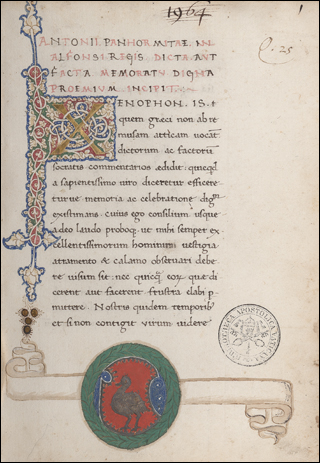 1964
1
C. 25
ANTONII PANHORMITAE IN
ALFONSI REGIS DICTA AUT
FACTA MEMORATU DIGNA
PROEMIUM INCIPIT
XENOPHON. IS
quem græci non ab re
musam atticam uocāt
dictorum ac factorū
socratis commentarios ædidit
a sapientissimo uiro diceretur efficere
turue memoria ac celebratione dignū
existimans. cuius ego consilium usque
adeo laudo proboq; ut mihi semper ex
cellentissimorum hominum uestigia
atramento & calamo obseruari debe
re uisum sit. nec quicq̄ eorū quæ di
cerent aut facerent frustra elabi p
mittere. Nostris quidem temporibꝰ
et si non contigit uirum uidere
BIBLIOTECA APOSTOLICA VATICANA